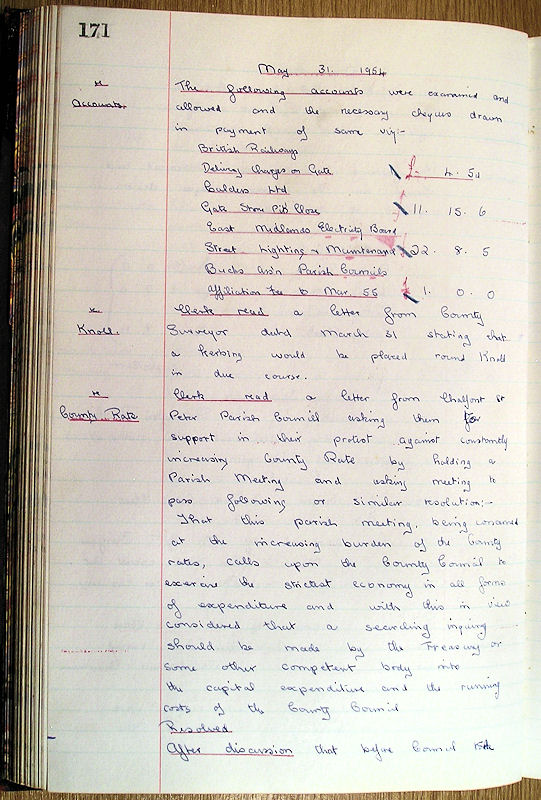 171
May 31. 1954
Accounts.
The following accounts were examined and
allowed and the necessary cheques drawn
in payment of same viz:-
British Railways
Delivery Charges on Gate £- 4. 5d
Calders Ltd
Gate Stow Pitt Close 11. 15. 6
East Midlands Electricity Board
Street Lighting & Maintenance 22. 8. 5
Bucks Assn Parish Councils
Affiliation Fee to Mar. 55 £ 1. 0. 0
Knoll.
Clerk read a letter from County
Surveyor dated March 31 stating that
a kerbing would be placed round Knoll
in due course.
County Rate
Clerk read a letter from Chalfont St
Peter Parish Council asking them for
support in their protest against constantly
increasing County Rate by holding a
Parish Meeting and asking meeting to
pass following or similar resolution;-
That this parish meeting, being concerned
at the increasing burden of the County
rates, calls upon the County Council to
exercise the strictest economy in all forms
of expenditure and with this in view
considered that a searching inquiry
should be made by the Treasury or
some other competent body into
the capital expenditure and the running
costs of the County Council
Resolved
After discussion that before Council